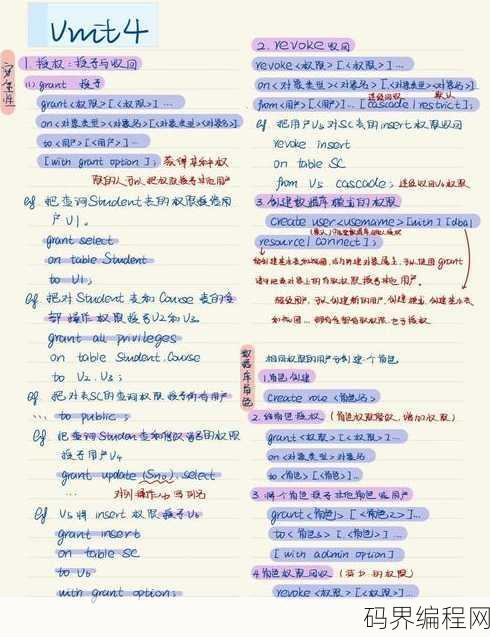 Unit 4
安全性
1. 授权：授予与收回
(1) grant 授予
grant<权限>[<权限>]…
on<对象类型><对象名>[<对象类型><对象名>]
to<用户>[<用户>]…
[with grant option]; 获得某种权
限的人可以把权限授予其他用户
eg. 把查询Student表的权限授给用
户U1。
grant select
on table Student
to U1;
eg. 把对Student表和Course表的全
部操作权限授予U2和U3。
grant all privileges
on table Student.Course
to U2.U3;
eg. 把对表SC的查询权限授予所有用户
… to public;
eg. 把查询Studen表和修改学号的权限
授予用户U4
grant update(Sno).select
… 对列操作
eg. U5将insert权限授予U6
grant insert
on table SC
to U6
with grant option;
2. revoke 收回
revoke<权限>[<权限>]…
on<对象类型><对象名>[<对象类型><对象名>]
级联回收 默认
from<用户>[<用户>]…[cascade|restrict];
eg. 把用户U5对SC表的insert权限收回
revoke insert
on table SC
from U5 cascade;
3. 创建数据库模式的权限
create user<username>[with][dba|
resource|connect];
数据库角色
相同权限的用户可创建一个角色
1. 角色创建
create role <角色名>
2. 给角色授权（角色权限修改、增加权限）
grant<权限>[<权限>]…
on<对象类型>对象名
to<角色>[<角色>]…
3. 将个角色授予其他角色或用户
grant<角色1>[<角色2>]…
to<角色3>[<角色>]…
[with admin option]
4. 角色权限回收（减少的权限）
revoke<权限>[<权限>]…
码界编程网